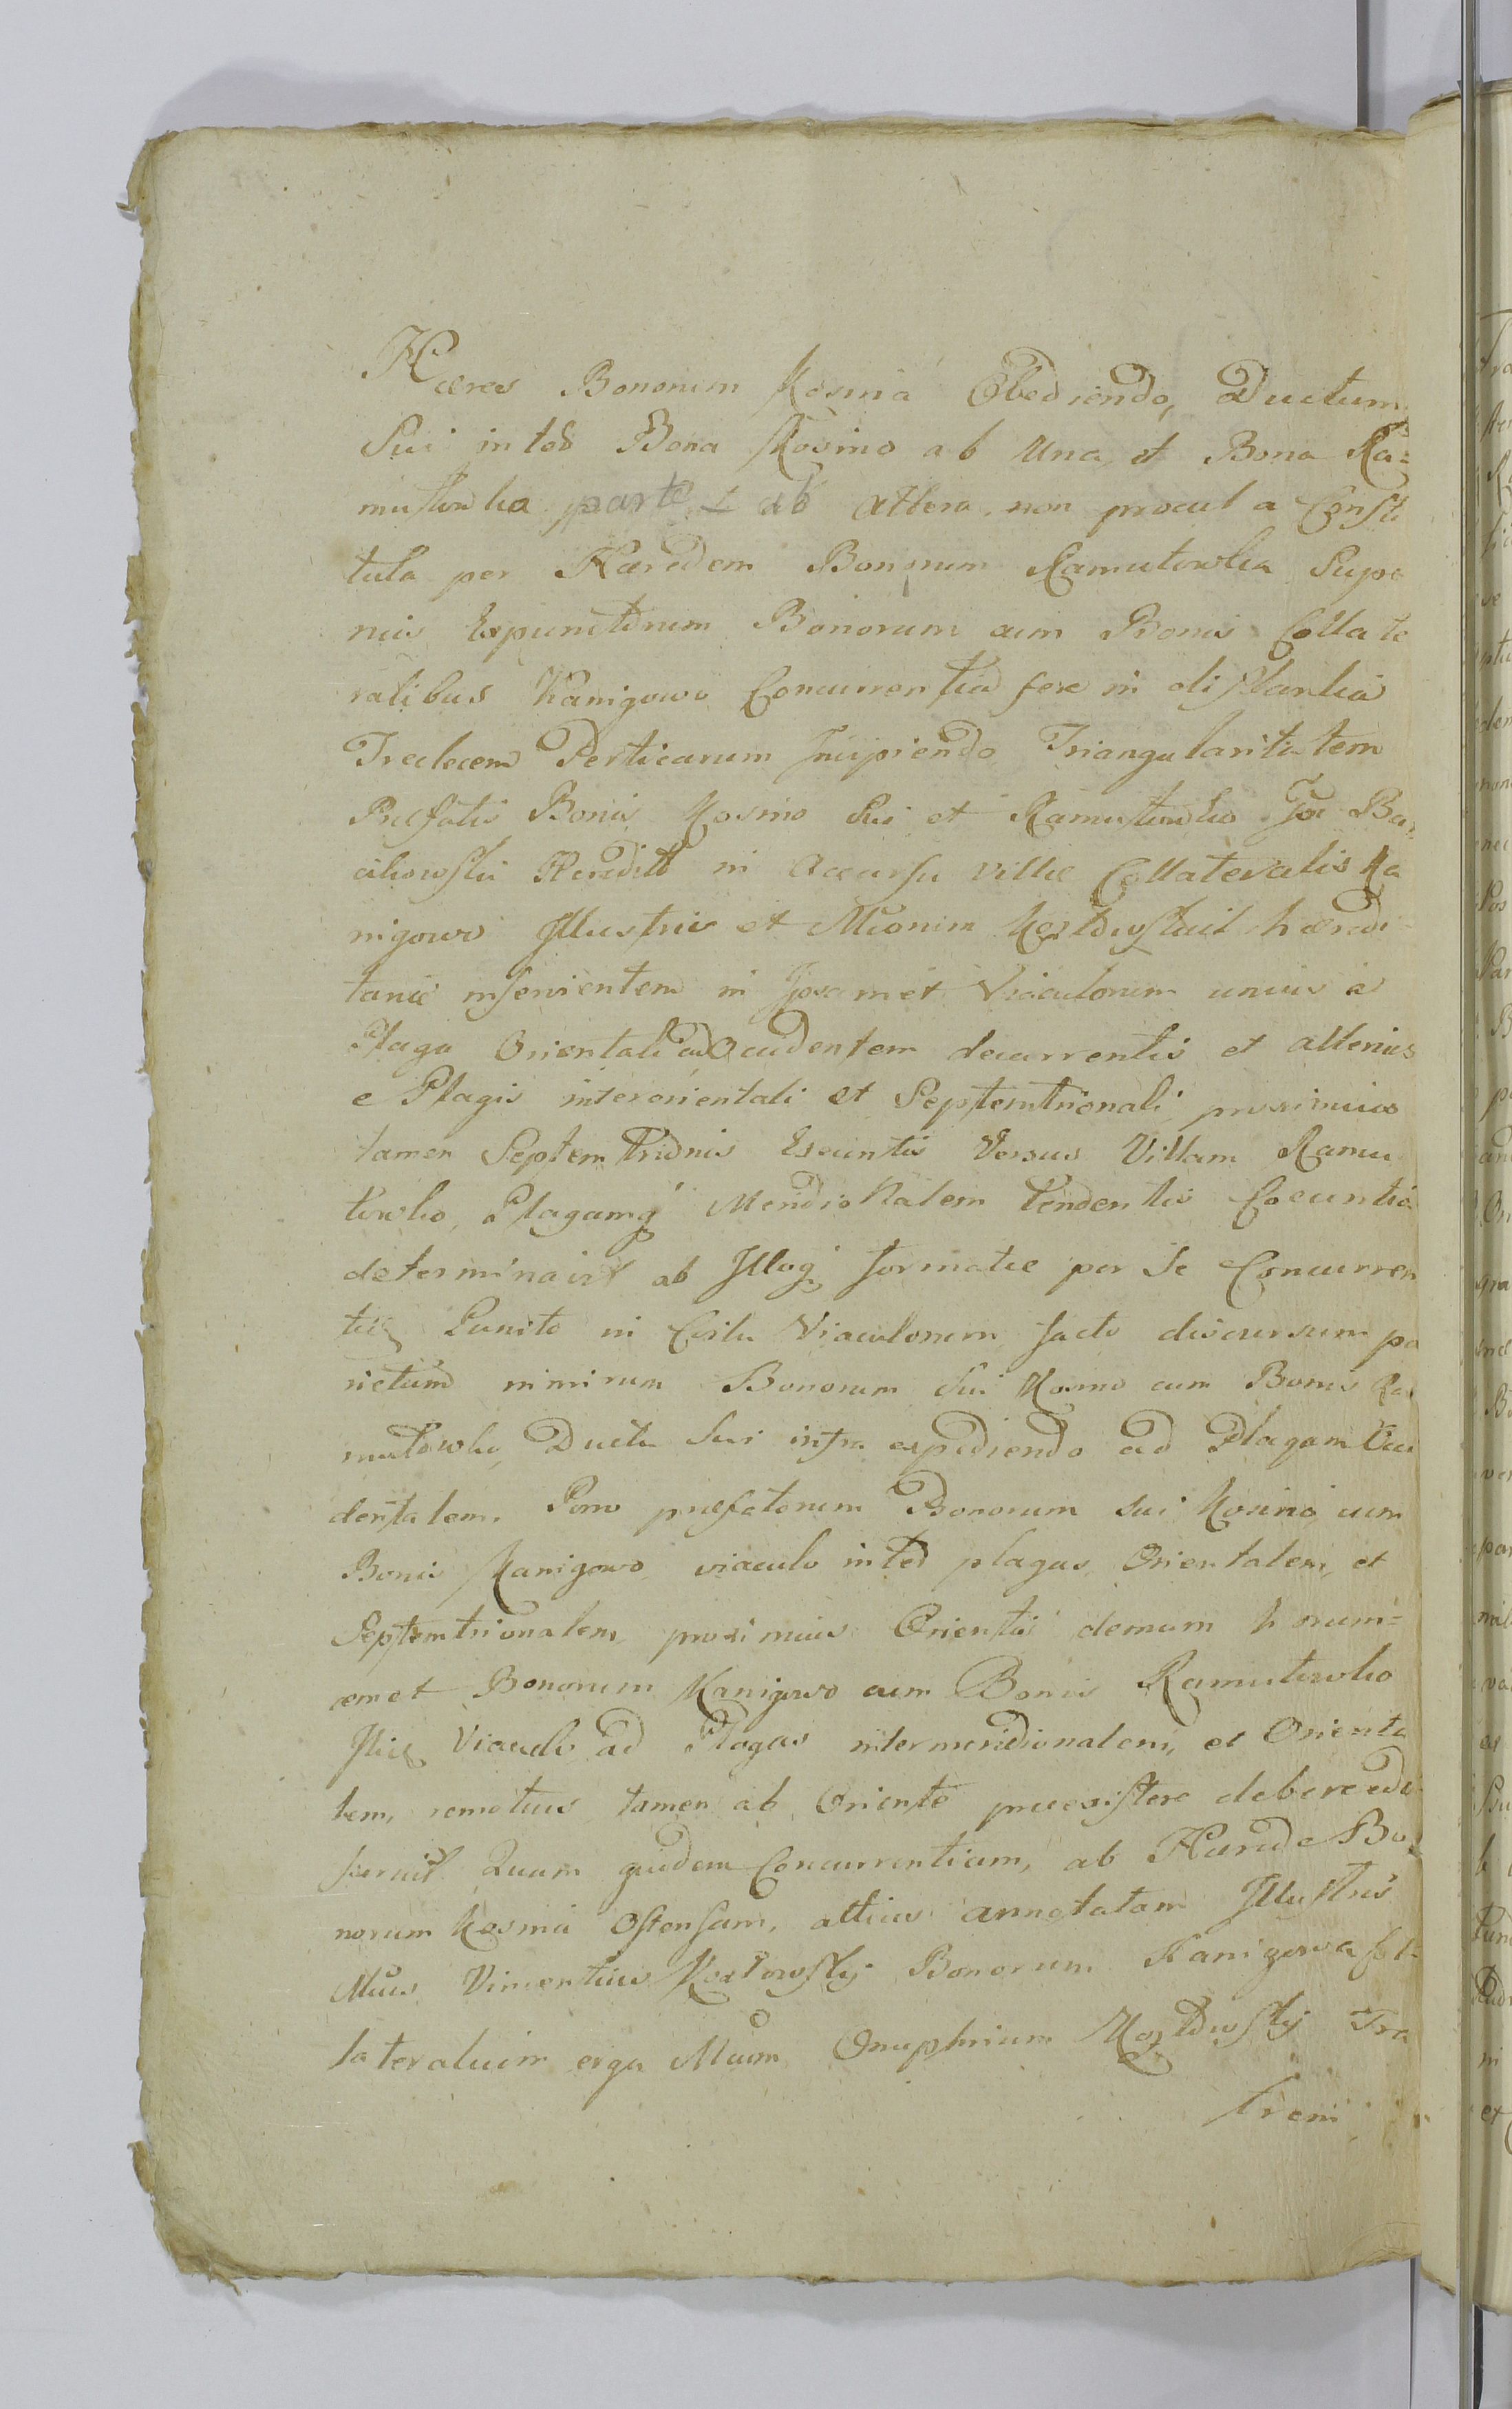 Hæres Bonorum Kosmia Obediendo, Ductum
Sui inter Bona Kosino ab Una, et Bona Ra=
mutowko parte ab altera. non procul a Consti
tuta per Hæredem Bonorum Ramutowka Supe
rius Expunctorum Bonorum cum Bonis Collate
ralibus Kanigowo Concurrentia fere in distantia
Tredecem Perticarum Incipiendo Triangularitatem
Præfatis Bonis Kosino Sui et Ramutowko Ba=
cikowskii in Accursu villæ Collateralis Ka
nigowo Illustris et Kozłowskiit hæredi
tariæ inservientem in Ipsamet Viaculorum unius a
Plaga Orientali ad Occidentem decurrentis et alterius
e Plagis interorientali et Septemtrionali, proximius
tamen Septemtrionis Exeuntis Versus Villam Ramu
towko, Plagamq Meridionalem tendentis Coeuntia
determinavit ab Illaq formatæ per Se Concurren
tiæ Puncto in Coitu Viaculorum facto discursum pa
rietum nimirum Bonorum Sui Kosino cum Bonis Ra
mutowko, Ductu Sui infra expediendo ad Plagam Occi
dentalem. Porro præfatorum Bonorum Sui Kosino cum
Bonis Kanigowo viaculo inter plagas Orientalem, et
Septemtrionalem proximius Orientis demum horum=
emet Bonorum Kanigowo cum Bonis Ramutowko
Viaculo ad Plagas intermeridionalem, et Orienta
lem, remotius tamen ab Oriente præexistere debere
seruit Quam quidem Concurrentiam, ab Hærede Bo=
norum Kosmia Ostensam, altius annotatam Illustris
Mūus Vincentius Kozłowskij Bonorum Kanigowa Col=
lateralium erga Mūum Onuphrium Kozłowskij Fra
trem